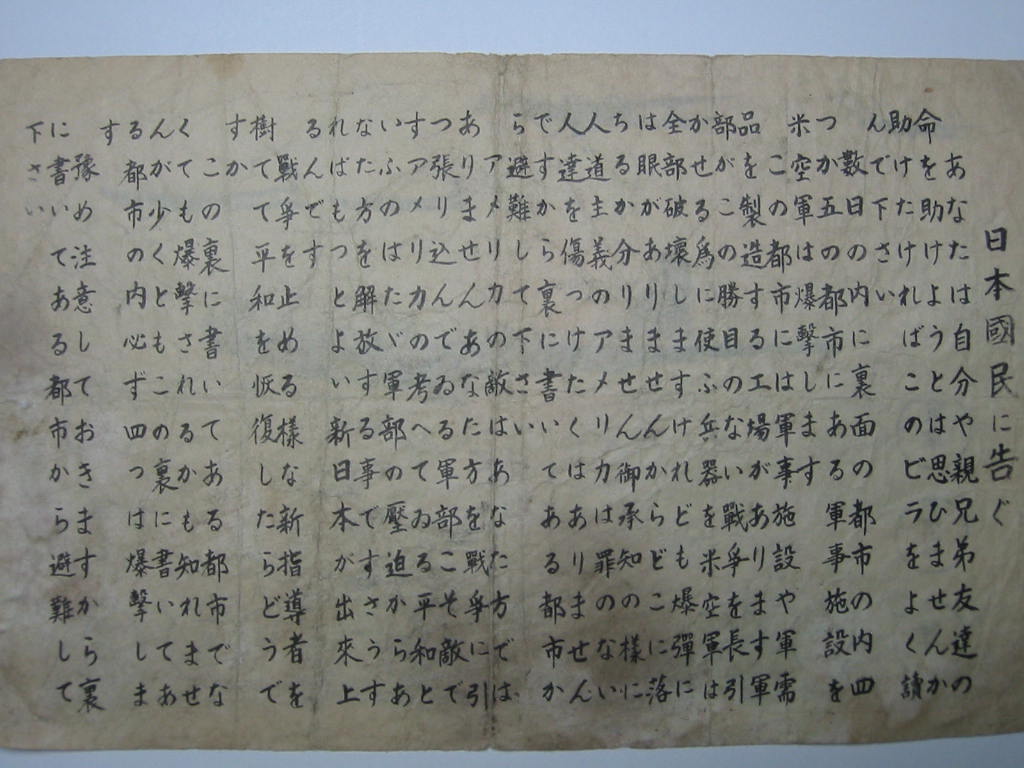 日本國民に告ぐ
あなたは自分や親兄弟友達の
命を助けようとは思ひませんか
助けたければこのビラをよく讀
んで下さい
数日の内に裏面の都市の内四
つか五の都市にある軍事施設を
米空軍は爆撃します
この都市には軍事施設や軍需
品を製造する工場があります軍
部がこの勝目のない戰爭を長引
かせる為に使ふ兵器を米空軍は
全部破壊しますけれども爆彈に
は眼がありませんからどこに落
ちるか分りません御承知の様に
人道主義のアメリカは罪のない
人達を傷つけたくはありません
ですから裏に書いてある都市か
ら避難して下さい
アメリカの敵はあなた方では
ありませんあなた方を戰爭に引
つ張り込んでゐる軍部こそ敵で
すアメリカの考へてゐる平和と
いふのはたゞ軍部の壓迫からあ
なた方を解放する事ですさうす
ればもつとよい新日本が出來上
るんです
戰爭を止める樣な新指導者を
樹てて平和を恢復したらどうで
すか
この裏に書いてある都市でな
くても爆擊されるかも知れませ
んが少くともこの裏に書いてあ
る都市の内必ず四つは爆擊しま
す
豫め注意しておきますから裏
に書いてある都市から避難して
下さい